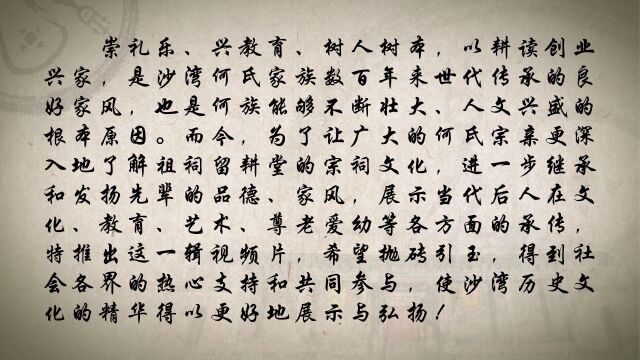 崇礼乐、兴教育、树人树本，以耕读创业
兴家，是沙湾何氏家族数百年来世代传承的良
好家风，也是何族能够不断壮大、人文兴盛的
根本原因。而今，为了让广大的何氏宗亲更深
入地了解祖祠留耕堂的宗祠文化，进一步继承
和发扬先辈的品德、家风，展示当代后人在文
化、教育、艺术、尊老爱幼等各方面的承传，
特推出这一辑视频片，希望抛砖引玉，得到社
会各界的热心支持和共同参与，使沙湾历史文
化的精华得以更好地展示与弘扬！